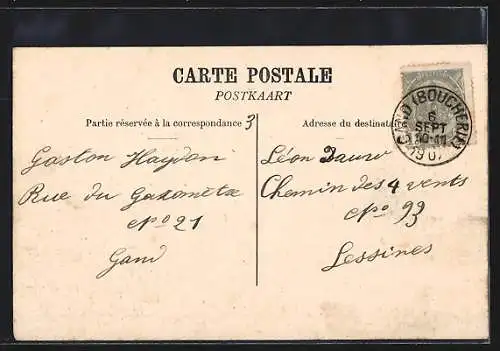 CARTE POSTALE
POSTKAART
Partie réservée à la correspondance 3
Adresse du destinataire
GAND (BOUCHERIE)
6
SEPT
10-11
1907
Gaston Haydon
Rue du Gazomètre
Nº 21
Gand
Léon
Chemin des 4 vents
Nº 93
Lessines